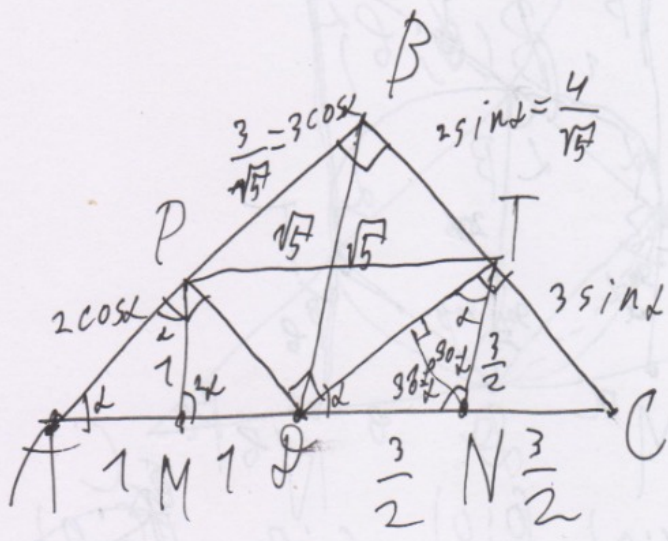 B
3/√5 = 3cosα
2sinα = 4/√5
P
√5 √5
T
2cosα
3sinα
α
1
2α
α
90-α
3/2
α
α
A 1 M 1 D 3/2 N 3/2 C